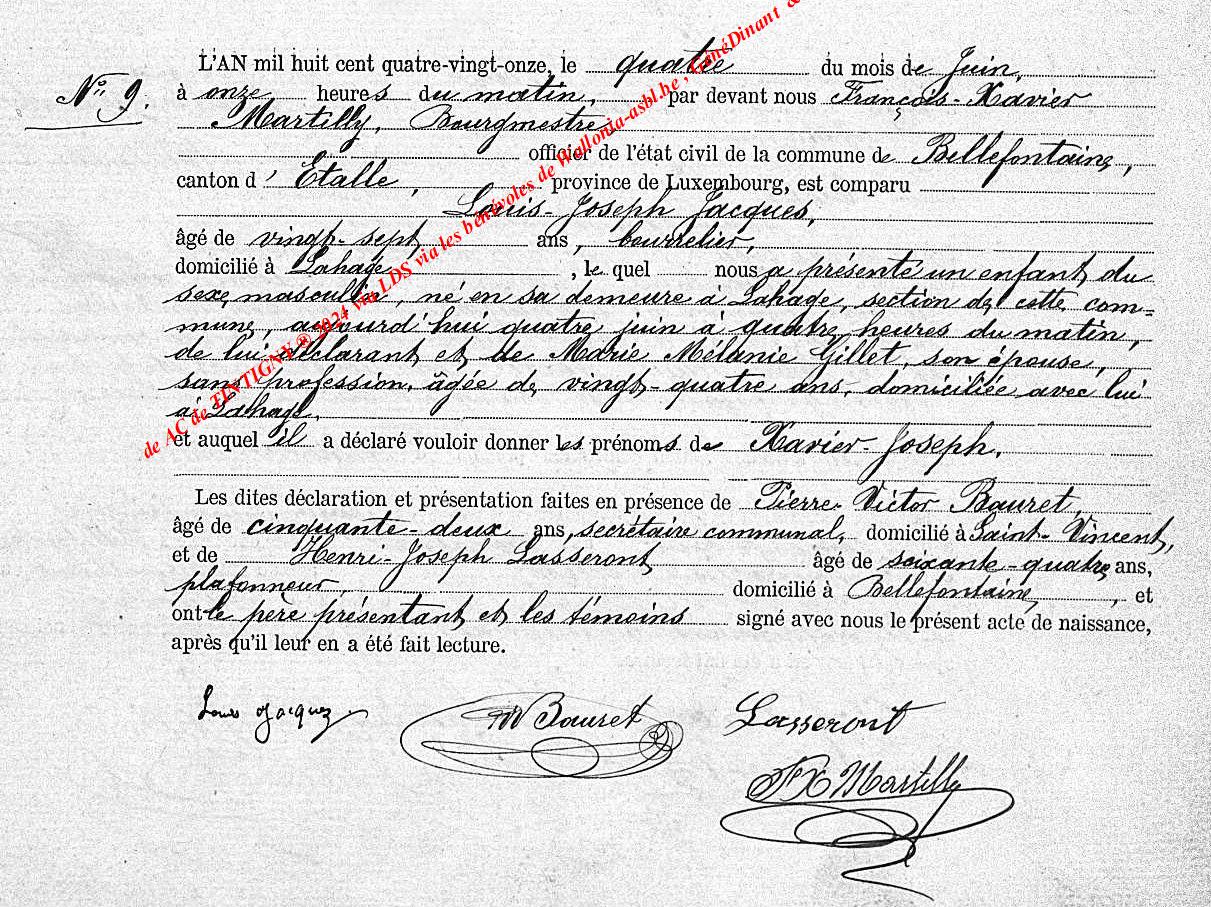 de AC de TINTIGNY ® 2024 via LDS via les bénévoles de Wallonia-asbl.be , GénéDinant &
L'AN mil huit cent quatre-vingt-onze, le quatre du mois de Juin,
N° 9. à onze heures du matin, par devant nous François-Xavier
Martilly, Bourgmestre
officier de l'état civil de la commune de Bellefontaine,
canton d' Etalle, province de Luxembourg, est comparu
Louis-Joseph Jacques,
âgé de vingt-sept ans, bourrelier,
domicilié à Lahage, le quel nous a présenté un enfant du
sexe masculin, né en sa demeure à Lahage, section de cette com-
mune, aujourd'hui quatre juin à quatre heures du matin,
de lui déclarant et de Marie Mélanie Gillet, son épouse,
sans profession, âgée de vingt-quatre ans, domiciliée avec lui
à Lahage,
et auquel il a déclaré vouloir donner les prénoms de Xavier-Joseph.
Les dites déclaration et présentation faites en présence de Pierre-Victor Bauret,
âgé de cinquante-deux ans, secrétaire communal, domicilié à Saint-Vincent,
et de Henri-Joseph Lasseront âgé de soixante-quatre ans,
plafonneur, domicilié à Bellefontaine, et
ont le père présentant et les témoins signé avec nous le présent acte de naissance,
après qu'il leur en a été fait lecture.
Louis Jacques Bauret Lasseront
F X Martilly